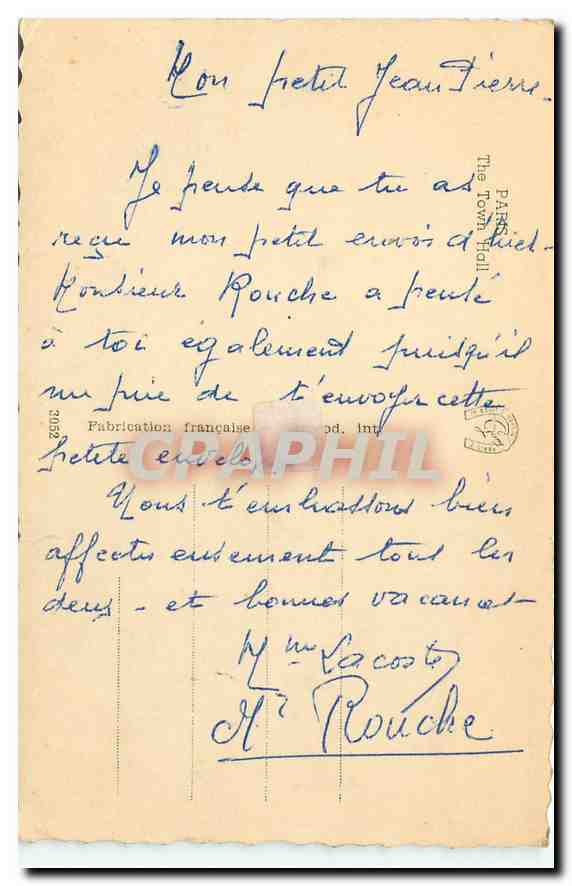 Mon petit Jean Pierre -
Je pense que tu as
reçu mon petit envoi d'hier -
Monsieur Rouche a pensé
à toi également puisqu'il
me prie de t'envoyer cette
petite envelop
Nous t'embrassons bien
affectueusement tous les
deux - et bonnes vacances -
Mme Lacoste
Mr Rouche
PARIS
The Town Hall
3052
Fabrication française
od. int
CRAPHIL